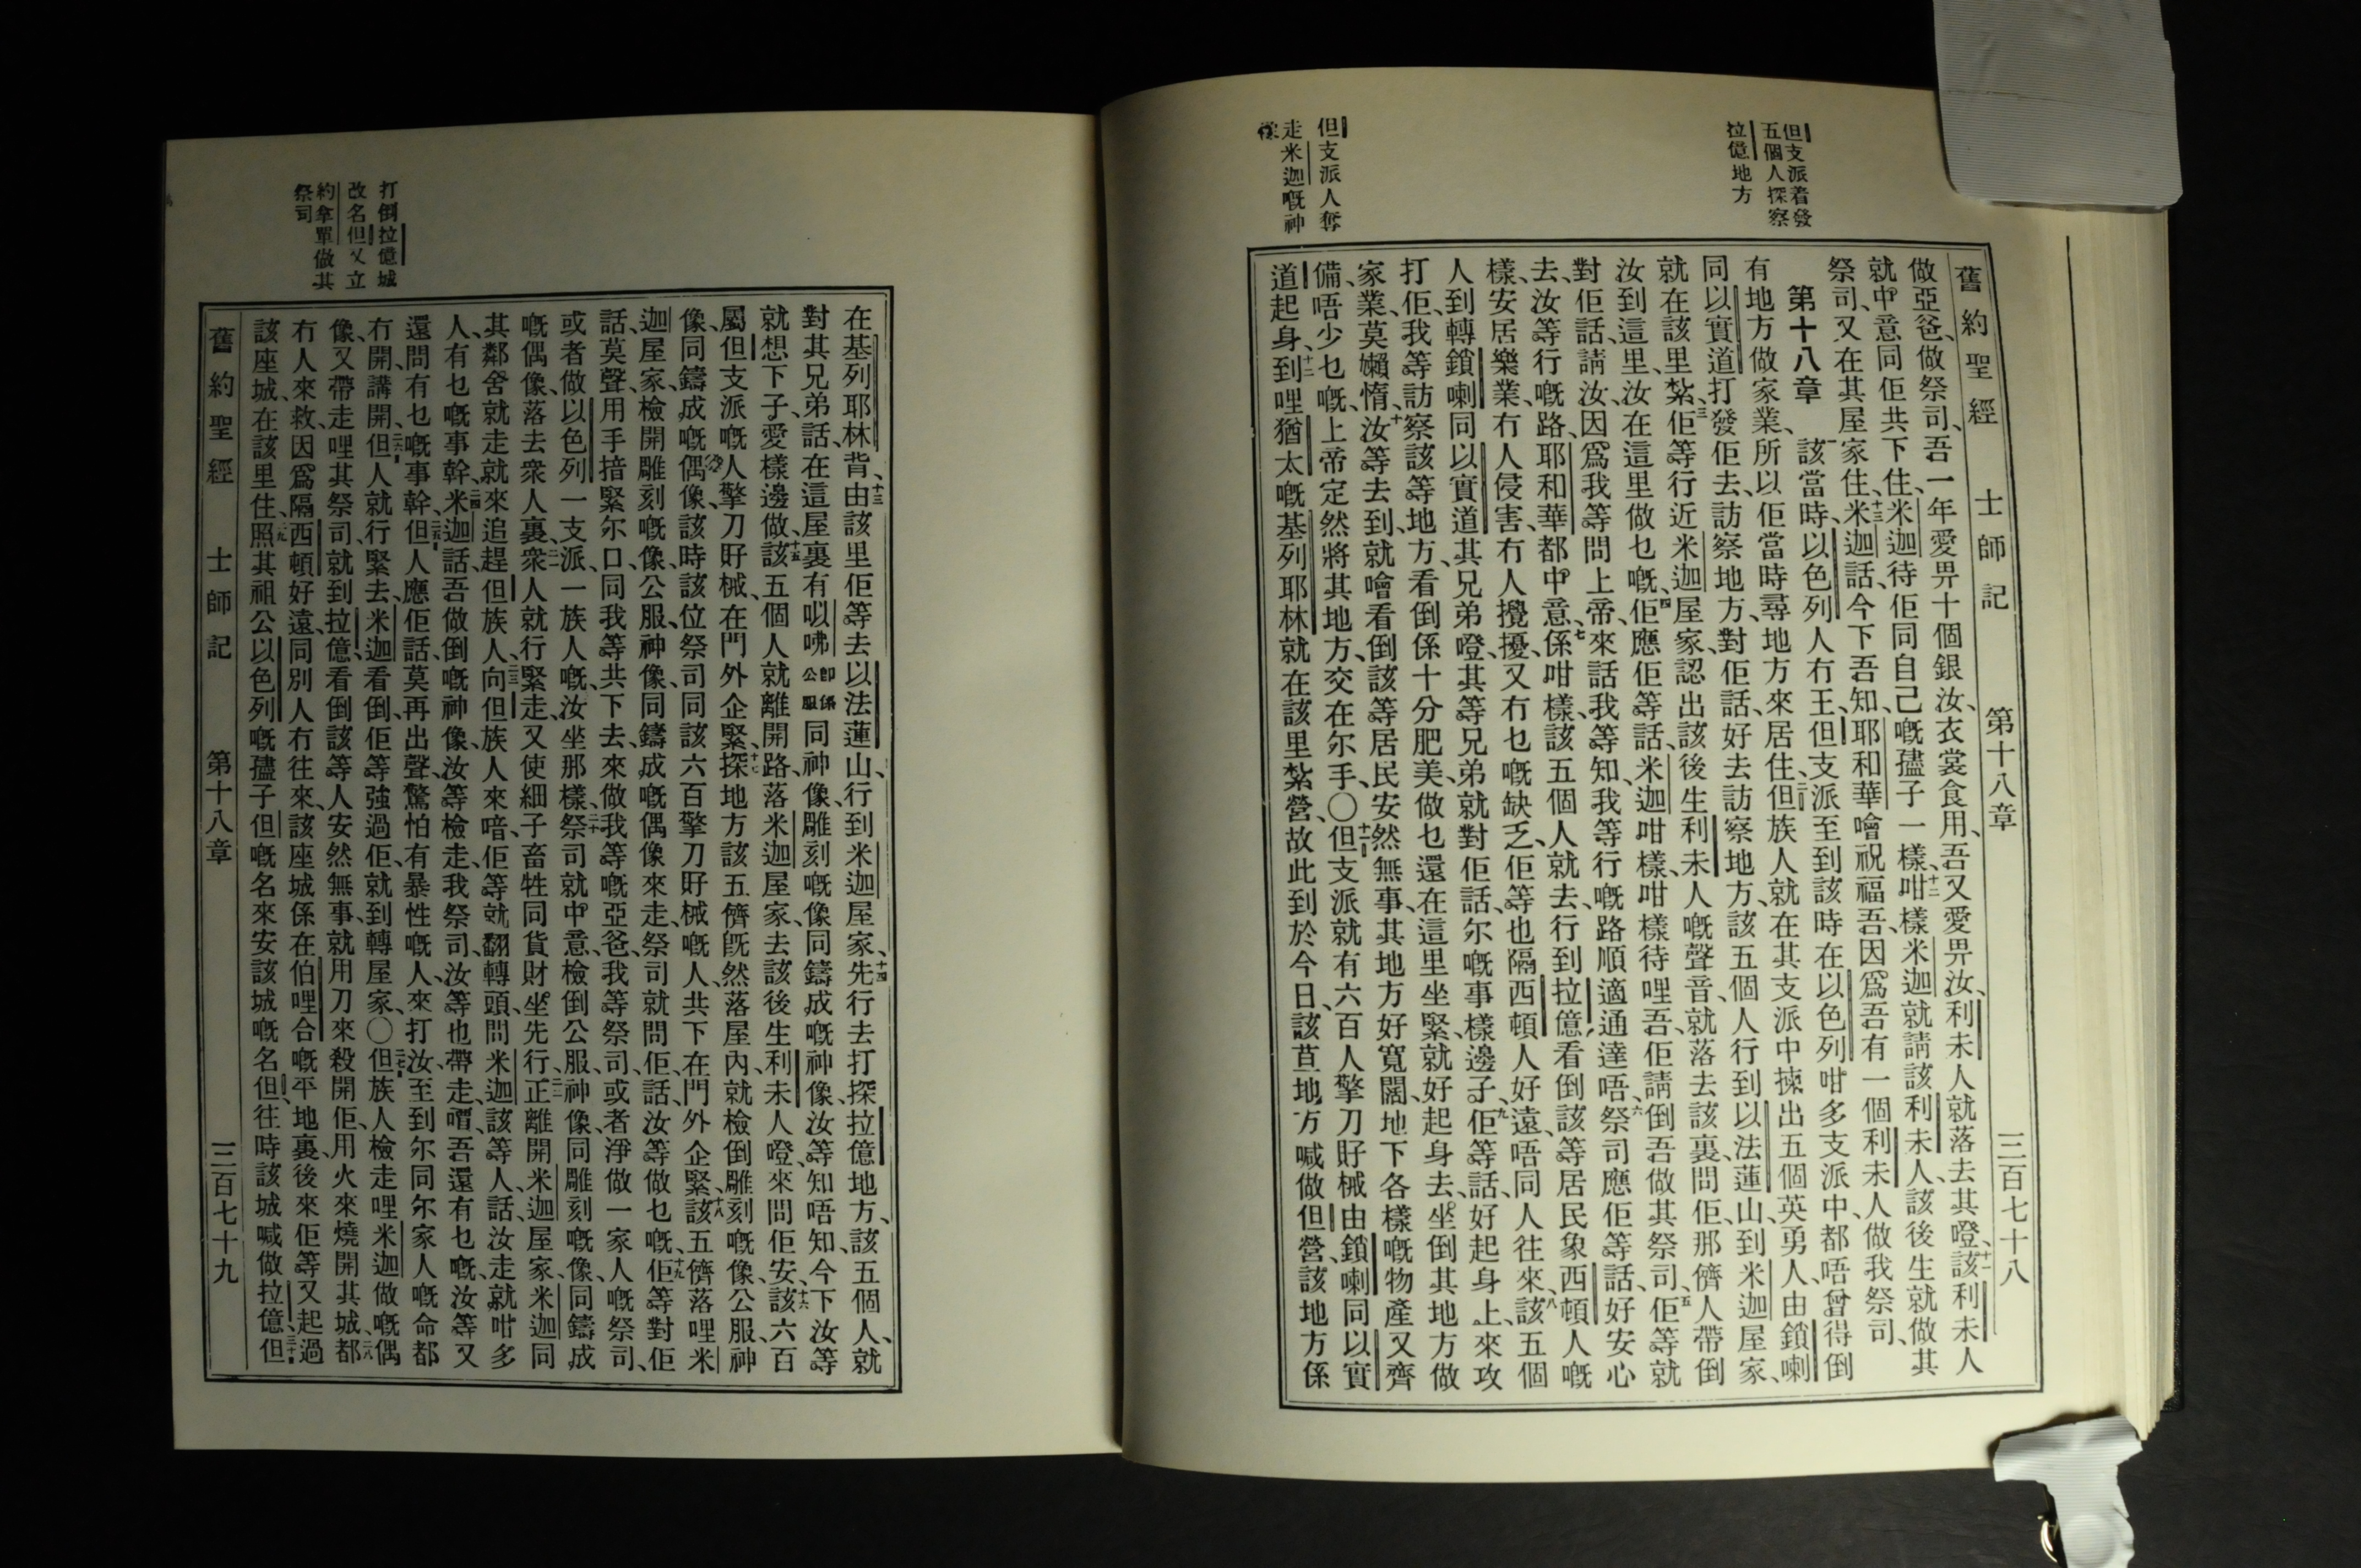 舊約聖經 士師記 第十八章 三百七十八
但支派着發
五個人探察
拉億地方
但支派人奪
走米迦嘅神
像
做亞爸、做祭司、吾一年愛畀十個銀汝、衣裳食用、吾又愛畀汝、利未人就落去其噔、十一該利未人
就中意同佢共下住、米迦待佢同自己嘅孻子一樣、十二咁樣米迦就請該利未人、該後生就做其
祭司、又在其屋家住、十三米迦話、今下吾知、耶和華噲祝福吾、因爲吾有一個利未人做我祭司、
第十八章 一該當時、以色列人冇王、但支派至到該時在以色列咁多支派中、都唔曾得倒
有地方做家業、所以佢當時尋地方來居住、二但族人就在其支派中揀出五個英勇人、由鎖喇
同以實道打發佢去、訪察地方、對佢話、好去訪察地方、該五個人行到以法蓮山、到米迦屋家、
就在該里紮、三佢等行近米迦屋家、認出該後生利未人嘅聲音、就落去該裏、問佢、那儕人帶倒
汝到這里、汝在這里做乜嘅、四佢應佢等話、米迦咁樣咁樣待哩吾、佢請倒吾做其祭司、五佢等就
對佢話、請汝、因爲我等問上帝、來話我等知、我等行嘅路順適通達唔、六祭司應佢等話、好安心
去、汝等行嘅路、耶和華都中意、七係咁樣、該五個人就去、行到拉億、看倒該等居民、象西頓人嘅
樣、安居樂業、冇人侵害、冇人攪擾、又冇乜嘅缺乏、佢等也隔西頓人好遠、唔同人往來、八該五個
人到轉鎖喇同以實道其兄弟噔、其等兄弟就對佢話、尔嘅事樣邊子、九佢等話、好起身上來攻
打佢、我等訪察該等地方、看倒係十分肥美、做乜還在這里坐緊、就好起身去、坐倒其地方做
家業、莫嬾惰、十汝等去到、就噲看倒該等居民安然無事、其地方好寬闊、地下各樣嘅物產又齊
備、唔少乜嘅、上帝定然將其地方、交在尔手、〇十一但支派就有六百人擎刀𢦓械、由鎖喇同以實
道起身、十二到哩猶太嘅基列耶林、就在該里紮營、故此到於今日、該苴地方喊做但營、該地方係
打倒拉億城
改名但又立
約拿單做其
祭司
在基列耶林背、十三由該里佢等去以法蓮山、行到米迦屋家、十四先行去打探拉億地方、該五個人、就
對其兄弟話、在這屋裏有㕥咈卽係公服同神像、雕刻嘅像同鑄成嘅神像、汝等知唔知、今下汝等
就想下子、愛樣邊做、十五該五個人就離開路、落米迦屋家、去該後生利未人噔、來問佢安、十六該六百
屬但支派嘅人擎刀𢦓械、在門外企緊、十七探地方該五儕旣然落屋內、就檢倒雕刻嘅像、公服、神
像、同鑄成嘅偶像、該時該位祭司同該六百擎刀𢦓械嘅人、共下在門外企緊、十八該五儕落哩米
迦屋家、檢開雕刻嘅像、公服、神像、同鑄成嘅偶像來走、祭司就問佢、話、汝等做乜嘅、十九佢等對佢
話、莫聲、用手揞緊尔口、同我等共下去、來做我等嘅亞爸、我等祭司、或者淨做一家人嘅祭司、
或者做以色列一支派、一族人嘅、汝坐那樣、二十祭司就中意、檢倒公服、神像、同雕刻嘅像、同鑄成
嘅偶像、落去衆人裏、二一衆人就行緊走、又使細子畜牲同貨財坐先行、二二正離開米迦屋家、米迦同
其鄰舍就走、就來追趕但族人、二三向但族人來喑、佢等就翻轉頭、問米迦該等人、話、汝走、就咁多
人、有乜嘅事幹、二四米迦話、吾做倒嘅神像、汝等檢走、我祭司、汝等也帶走、喟、吾還有乜嘅、汝等又
還問有乜嘅事幹、二五但人應佢話、莫再出聲、驚怕有暴性嘅人、來打汝、至到尔同尔家人嘅命都
冇開、講開、二六但人就行緊去、米迦看倒、佢等強過佢、就到轉屋家、〇二七但族人檢走哩米迦做嘅偶
像、又帶走哩其祭司、就到拉億、看倒該等人安然無事、就用刀來殺開佢、用火來燒開其城都、二八
冇人來救、因爲隔西頓好遠、同別人冇往來、該座城係在伯哩合嘅平地裏、後來佢等又起過
該座城、在該里住、二九照其祖公以色列嘅孻子但嘅名來安該城嘅名但、往時該城喊做拉億、三十但
舊約聖經 士師記 第十八章 三百七十九